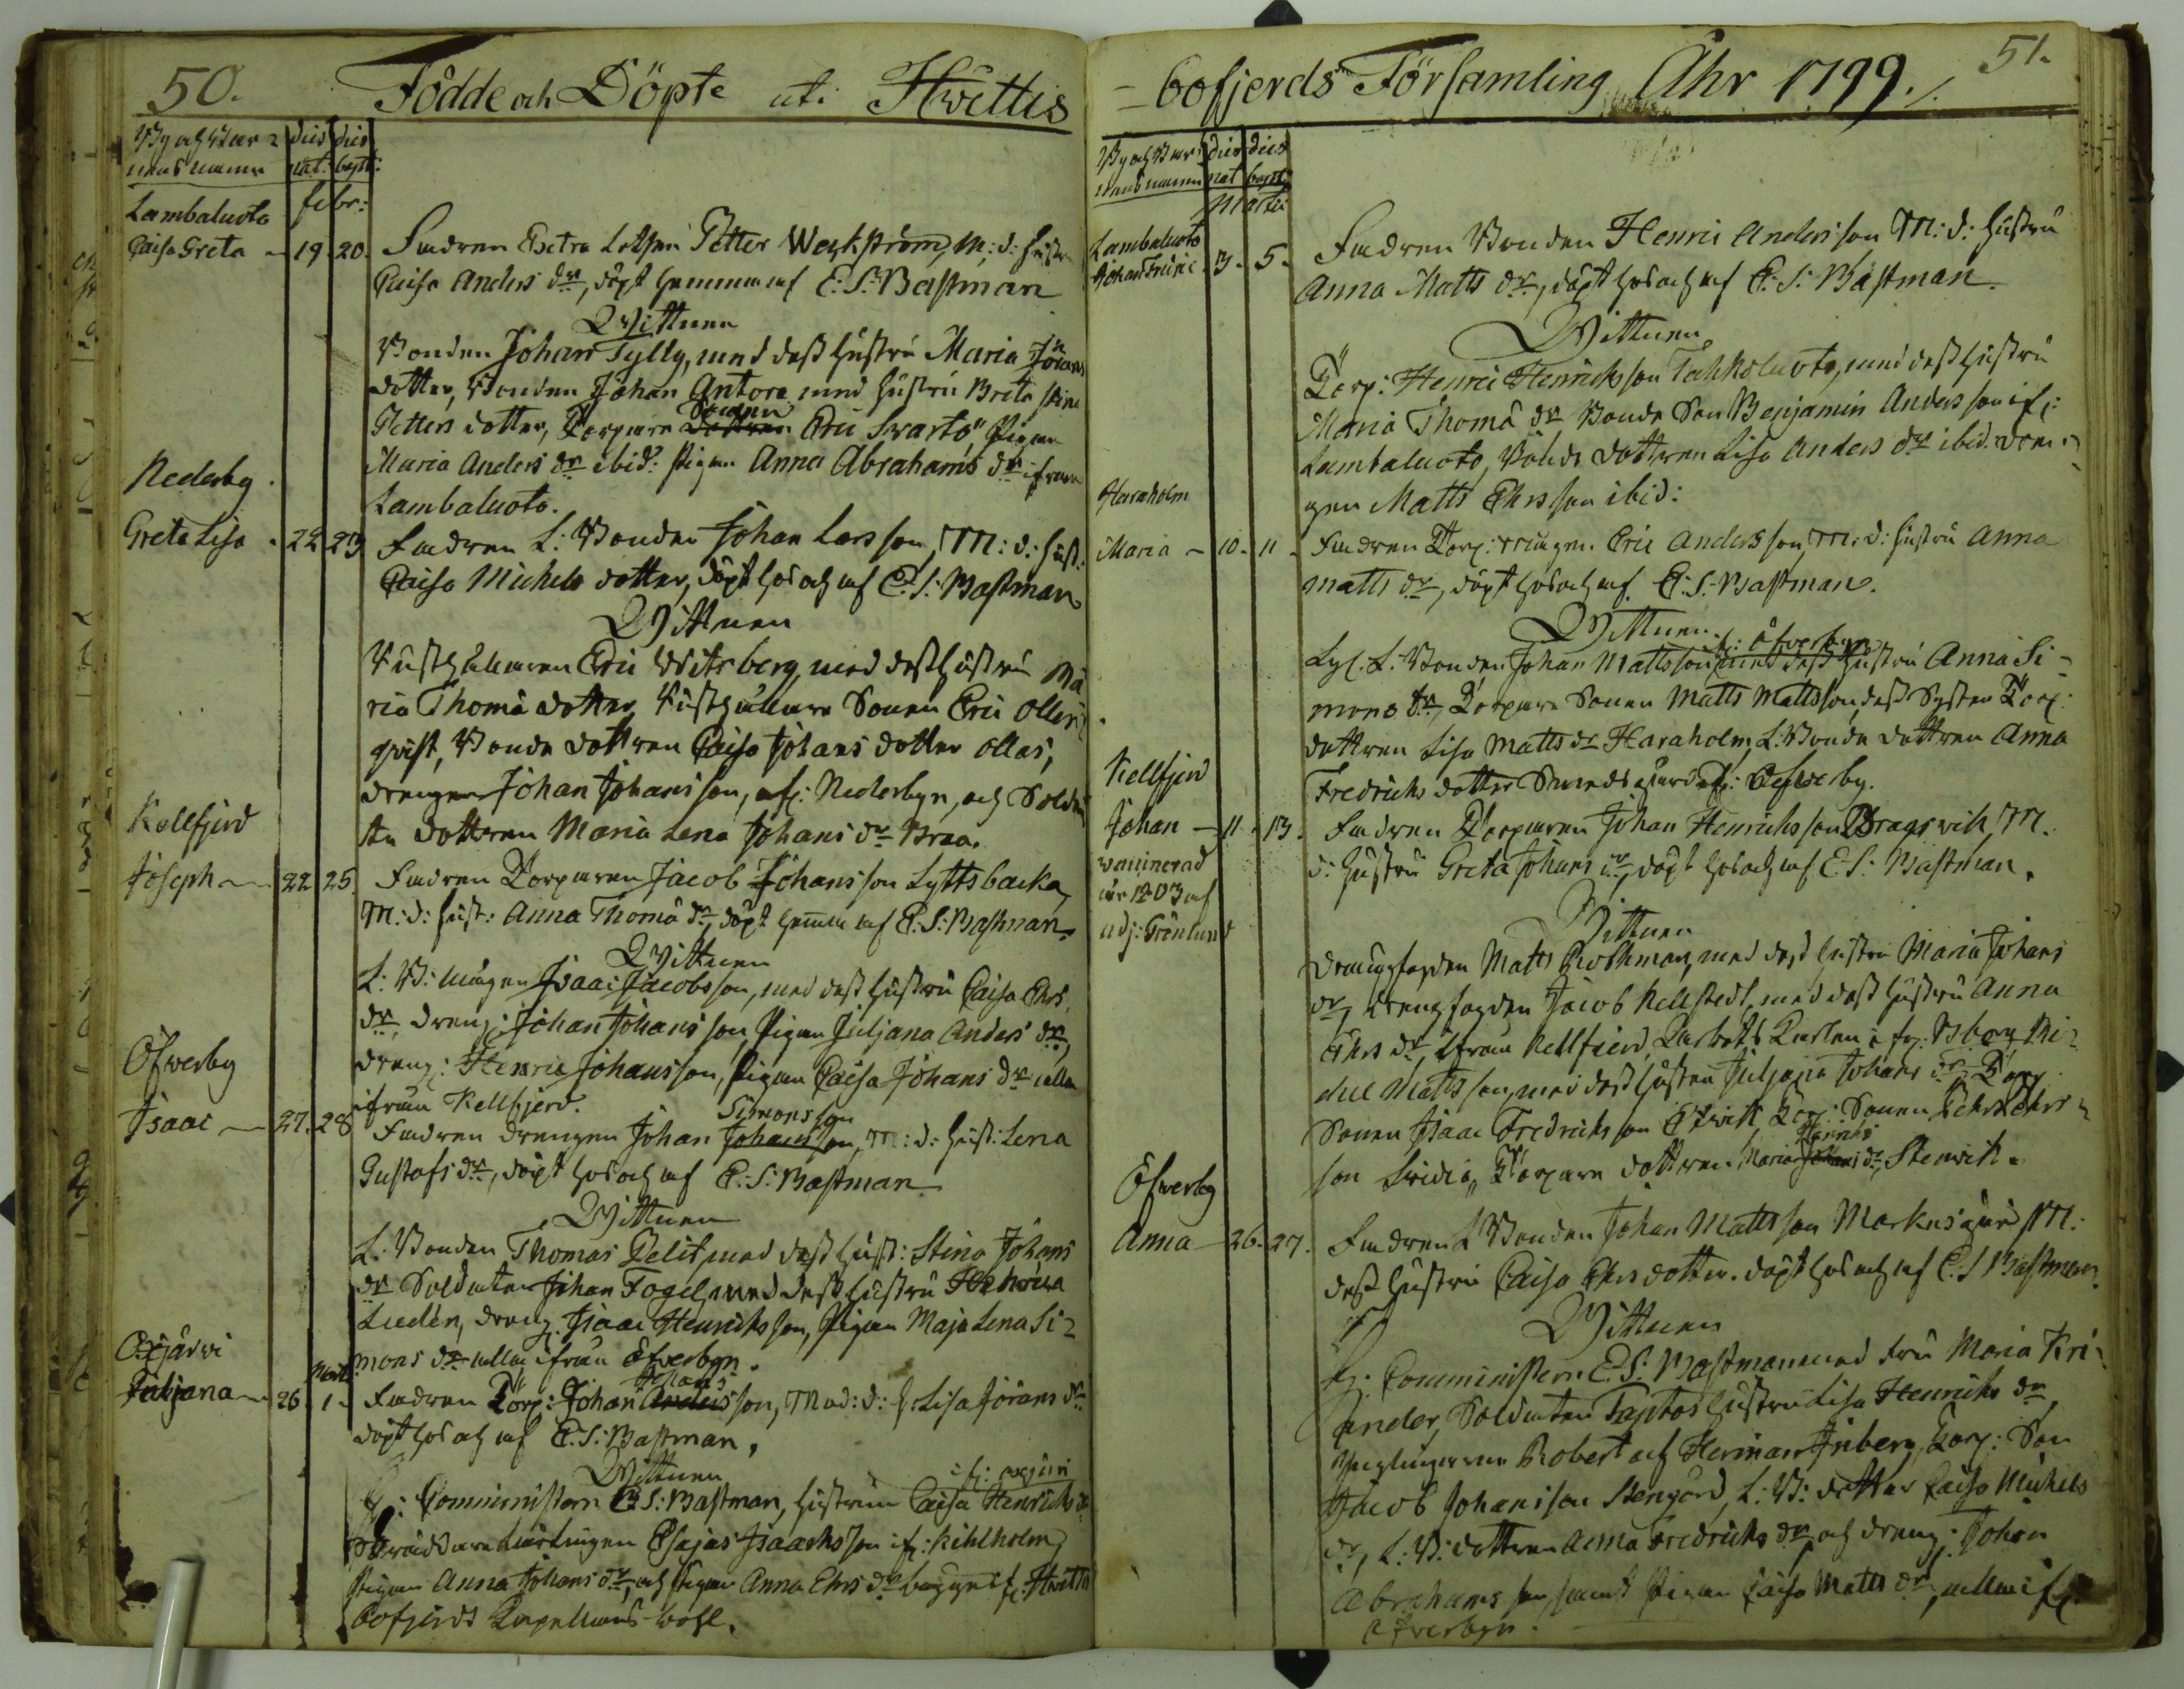 50.
Födde och Döpte uti Hvittis
By och Bar-
nens namn
dies nat:
dies bapt:
febr:
Lambaluoto
Caisa Greta - 19. 20. Fadren Extra Lotsen Petter Weckström, M: d: hustru
Caisa Anders dr, döpt hemma af E: S: Bastman
Wittnen
Bonden Johan Tylly, med dess hustru Maria Jöran
dotter, Bonden Johan Antore med hustru Brita Stina
Petters dotter, Torpare Sonen Eric Svartö, Pigan
Maria Anders dr ibid: Pigan Anna Abrahams dr ifrån
Lambaluoto.
Nederby
Greta Lisa - 22 23 Fadren L: Bonden Johan Larsson, M: d: hust:
Caisa Michels dotter, döpt hos och af E. S: Bastman
Wittnen
Eric Witsberg, med dess hustru Ma
ria Thomä dotter, Sonen Eric Ollen
qvist, Bonde dottren Caisa Johans dotter Ollas,
drengen Johan Johansson, ifr: Nederbyn, och Solda
te dottren Maria Lena Johans dr Braa.
Kellfjerd
Joseph - 22 25. Fadren Torparen Jacob Johansson Lyttsbacka
M: d: Hust: Anna Thomä dr, döpt hemma af E. S: Bastman.
Wittnen
L: B: mågen Isaac Jacobsson, med dess hustru Caisa Ehrs
dr, dreng: Johan Johansson, Pigan Juljana Anders dr,
dreng: Henric Johansson, Pigan Caisa Johans dr alla
ifrån Kellfjerd.
Öfverby
Isaac - 27. 28 Fadren drengen Johan Simonsson, M: d: Hust: Lena
Gustafs dr, döpt hos och af E: S: Bastman
Wittnen
L: Bonden Thomas Belit med dess hust: Stina Johans
dr Soldaten Johan Fogel, med dess hustru Henrica
Lindén, dreng Isaac Henricksson, Pigan Maja Lena Si-
mons dr alla ifrån Öfverbyn.
Mart:
Juljana - 26. 1. Fadren Torp: Johan Johansson, M: d: H: Lisa Jörans dr
döpt hos och af E. S: Bastman,
Wittnen
Comministern E. S: Bastman, hustrun Caisa Henrichs dr
Lärlingen Esajas Isaacksson ifr: Kihlholm,
Pigan Anna Johans dr, och Pigan Anna Ehrs dr begge ifr: Hvittis
bofjerds Capellans-bohl.
51.
-bofjerds Församling Åhr 1799.
By och Bar-
nens namn
dies nat
dies bapt:
Martii
Lambaluoto
Johan Fredric - 3. 5. Fadren Bonden Henric Andersson M: d: hustru
Anna Matts dr, döpt hos och af E. S: Bastman.
Wittnen
Torp: Henric Henricksson Tahkoluoto, med dess hustru
Maria Thomä dr Bonde Son Benjamin Andersson ifr:
Lambaluoto, Bonde dottren Lisa Anders dr ibid. dren-
gen Matts Ehrsson ibid:
Haraholm
Maria - 10. 11. Fadren Torp: mågen Eric Andersson, M: d: hustru Anna
Matts dr, döpt hos och af E: S: Bastman.
Wittnen
L: Bonden Johan Mattsson i: Öfverbyn med dess hustru Anna Si-
mons dr, Torpare Sonen Matts Mattsson, dess Syster Torp:
dottren Lisa Matts dr Haraholm, L: Bonde dottren Anna
Fredrichs dotter Smedsgård ifr: Öfverby.
Kellfjerd
Johan - 11 - 13. Fadren Torparen Johan Henrichsson Dragsvik, M:
d: hustru Greta Johans dr, döpt hos och af E. S: Bastman.
vaccinerad
år 1803 af
adj: Grönlund
Wittnen
Matts Bothman, med dess hustru Maria Johans
dr, Jacob Kellstedt, med dess hustru Anna
Ehrs dr, ifrån Kellfjerd, Mi-
chel Mattsson, med dess hustru Juljana Johans dr, Torp
Sonen Isaac Fredrichsson Torp: Sonen
son Torpare dottren Maria Henrichs dr, Stenvik.
Öfverby
Anna - 26. 27. Fadren L Bonden Johan Mattsson Markusgård M:
dess hustru Caisa Ehrs dotter. döpt hos och af E. S Bastman
Wittnen
Comministern E. S: Bastman med Fru Maria Kri-
ander, Soldaten Taptos hustru Lisa Henrichs dr,
Robert och Herman Inberg, Torp: Son
Jacob Johansson Stengård, L: B: dotter Caisa Michels
dr, L: B: dottren Anna Fredrichs dr och dreng: Johan
Abrahamsson, samt Pigan Caisa Matts dr, alla ifr:
Öfverbyn.